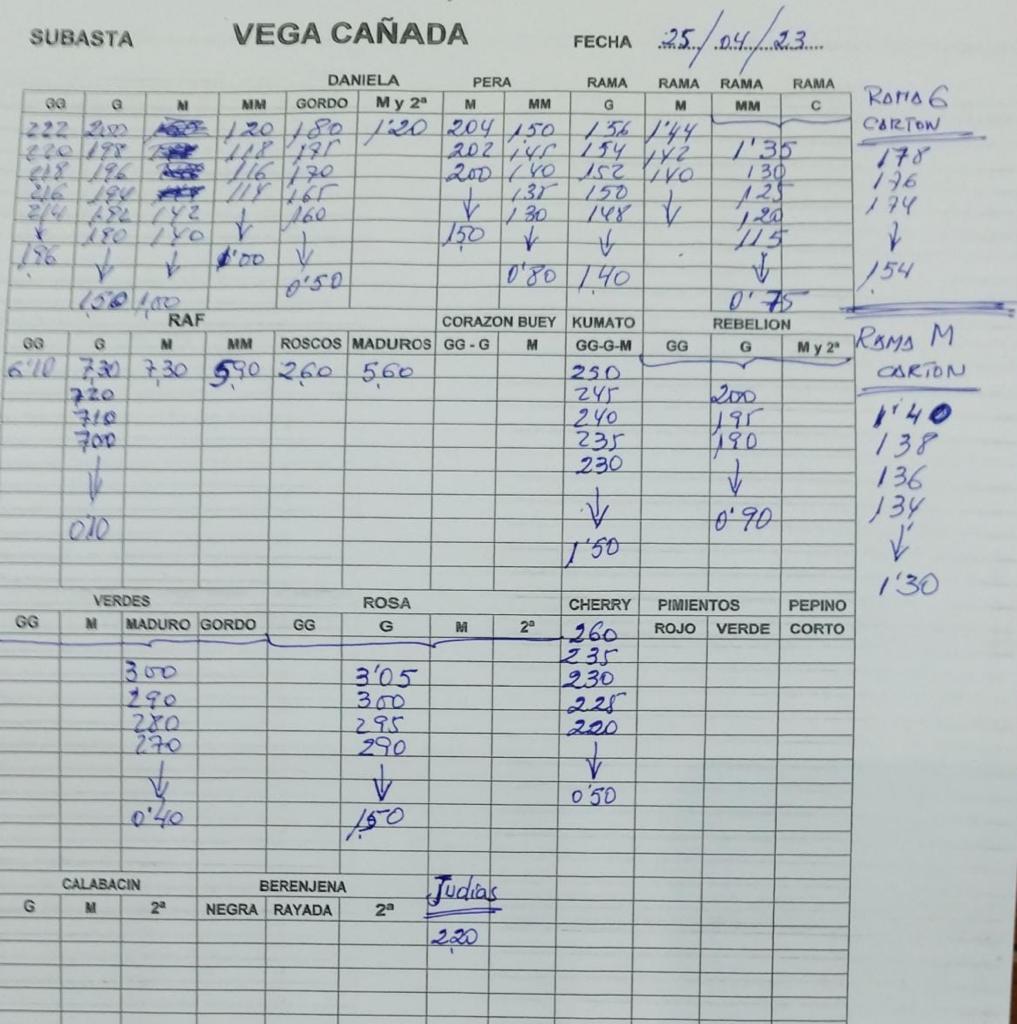 SUBASTA VEGA CAÑADA FECHA 25/04/23
DANIELA PERA RAMA RAMA RAMA RAMA
GG G M MM GORDO M y 2ª M MM G M MM C
222 200 120 180 1'20 204 150 1'56 1'44
220 198 118 175 202 145 154 142 1'35
218 196 116 170 200 140 152 140 130
216 194 114 165 ↓ 135 150 ↓ 125
214 192 142 ↓ 160 130 148 120
↓ 190 140 ↓ 150 ↓ ↓ 115
196 ↓ ↓ 1'00 0'80 1,40 ↓
1,50 1,00 0'50 0'75
RAMA G
CARTON
178
176
174
↓
1,54
RAF CORAZON BUEY KUMATO REBELION
GG G M MM ROSCOS MADUROS GG - G M GG-G-M GG G M y 2ª
6'10 7,30 7,30 5,90 2,60 5,60 250
720 245 200
710 240 195
700 235 190
↓ 230 ↓
↓ 0'90
1'50
RAMA M
CARTON
1'40
138
136
134
↓
1'30
VERDES ROSA CHERRY PIMIENTOS PEPINO
GG M MADURO GORDO GG G M 2ª ROJO VERDE CORTO
260
235
300 3'05 230
290 300 225
280 295 220
270 290 ↓
↓ ↓ 0'50
0'40 1,50
CALABACIN BERENJENA Judias
G M 2ª NEGRA RAYADA 2ª
2,20